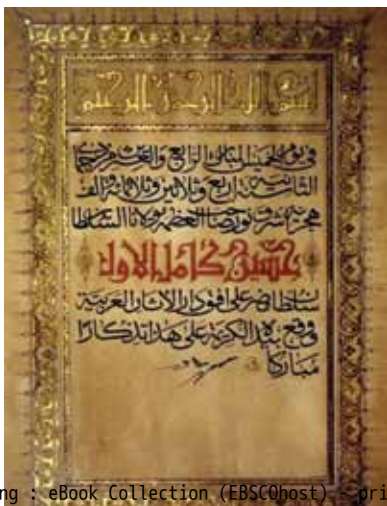 بسم الله الرحمن الرحيم
في يوم الخميس المبارك الرابع والعشرين من جمادى
الثانية سنة اربع وثلاثين وثلاثمائة والف
هجرية شرف نور صاحب العظمة مولانا السلطان
حسين كامل الاول
سلطان مصر على افق دار الاثار العربية
ووقع بيده الكريمة على هذا تذكارا
مباركا
ng : eBook Collection (EBSCOhost) - pri